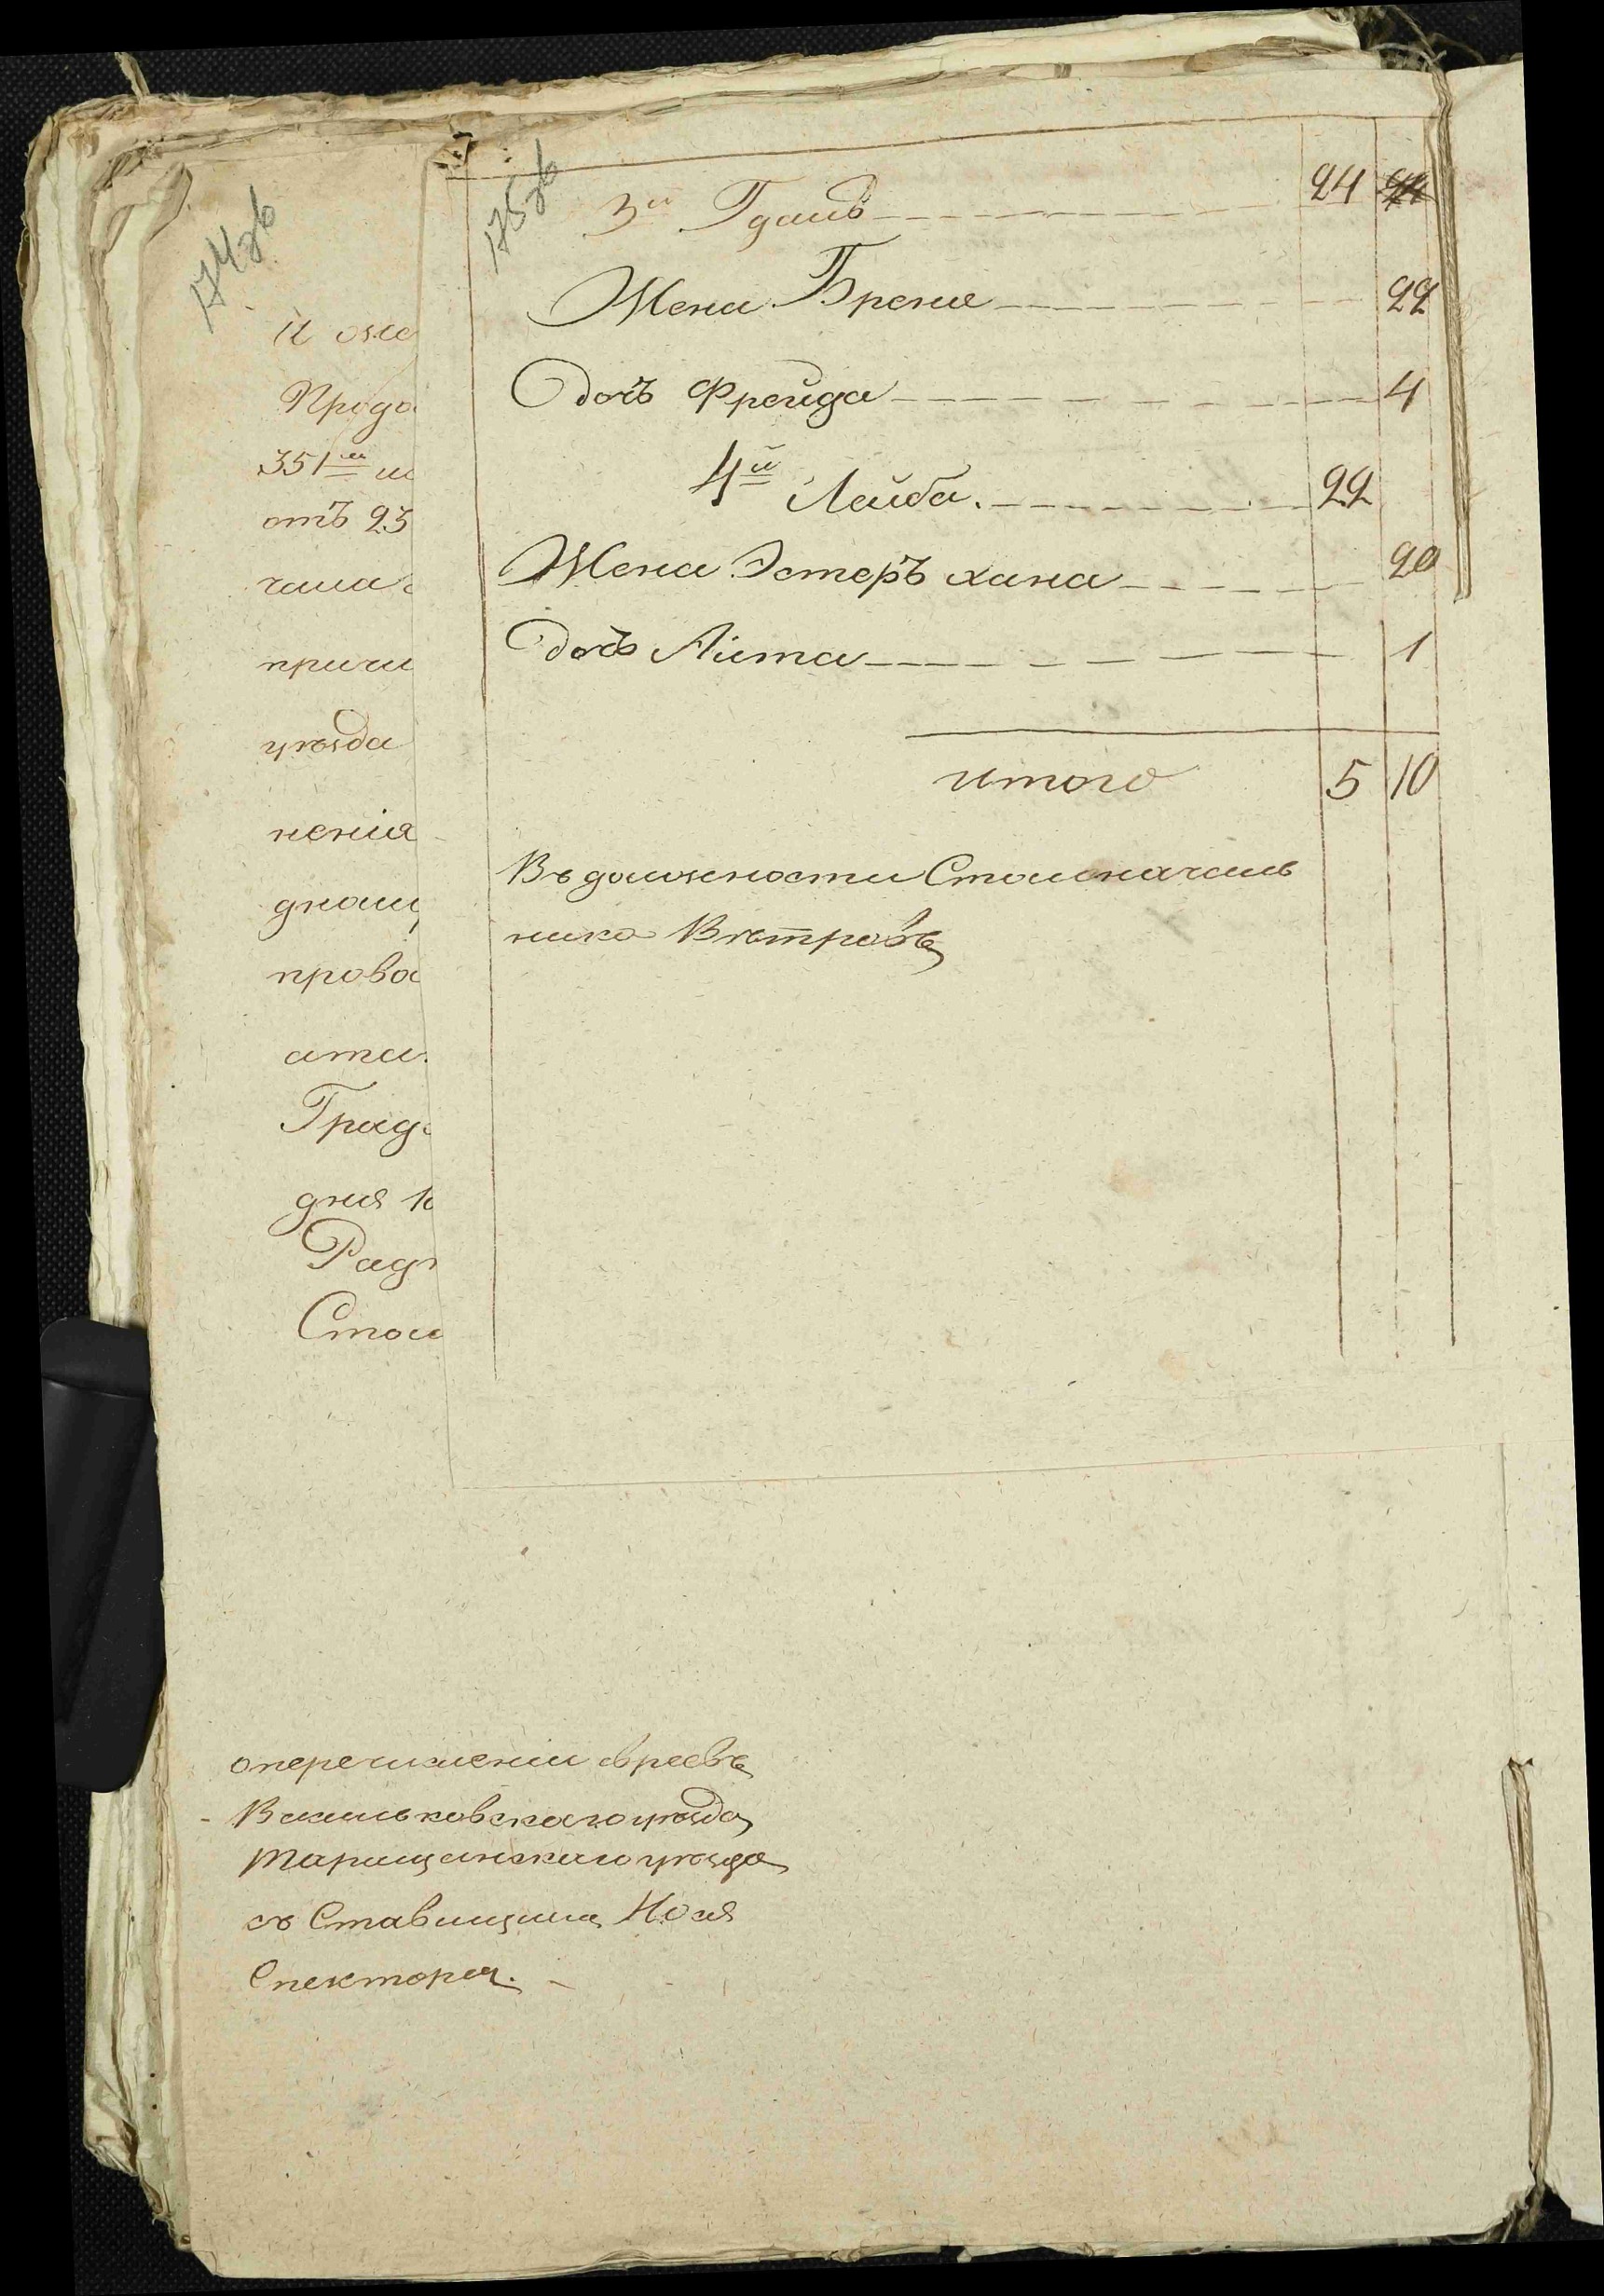 174зв
175зв
3й Гдаль 24
Жена Бреня 22
Дочь Фрейда 4
4й Лейба. 22
Жена Эстеръ хана 20
Дочь Аита 1
итого 5 10
Въ должности Столоначаль
ника Вѣтровъ
И
Продо
351м
отъ 23
причи
уѣзда
ненія
прова
Град
дня
Рад
Стол
о перечисленіи евреевъ
Васильковскаго уѣзда
Таращанскаго уѣзда
съ Ставищ Нося
Спектора.